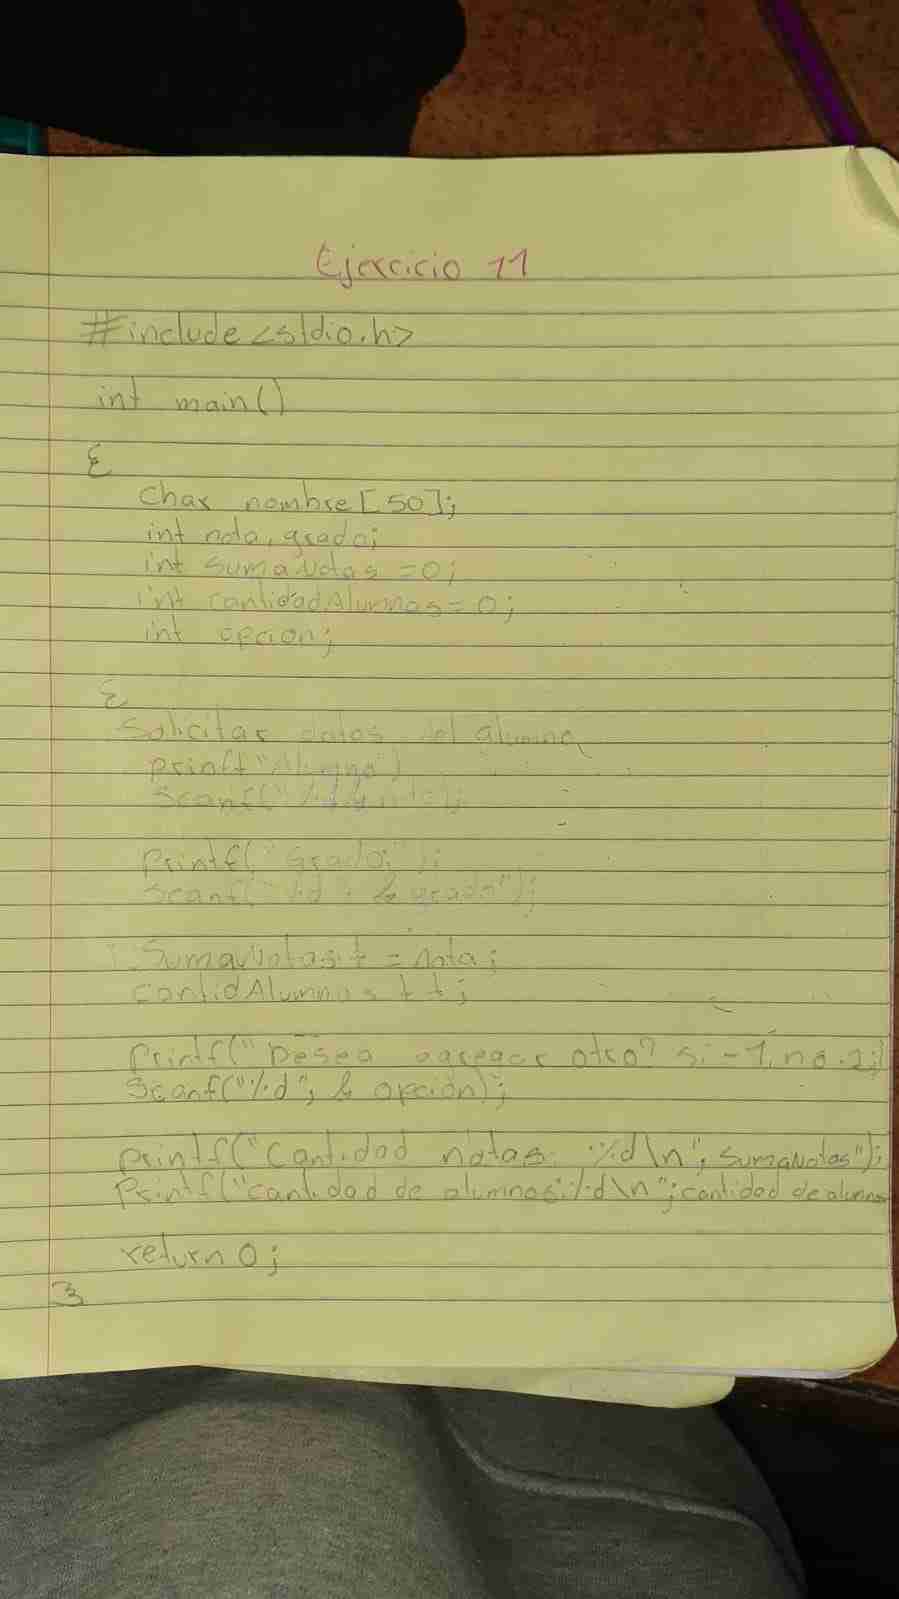 Ejercicio 11
#include <stdio.h>
int main()
{
char nombre [50];
int nota, grado;
int sumaNotas = 0;
int cantidadAlumnos = 0;
int opcion;
{
Solicitar datos del alumno
printf "Alumno")
Scanf("%d
printf(" Grado: ");
Scanf(" %d " & grado");
SumaNotas + = nota;
cantidAlumnos + + ;
printf(" Desea agregar otro? si - 1, no . 2;)
Scanf("%d"; & opcion);
printf("Cantidad notas: %d\n"; sumaNotas");
Printf("cantidad de alumnos: %d\n"; cantidad de alumno
return 0;
}